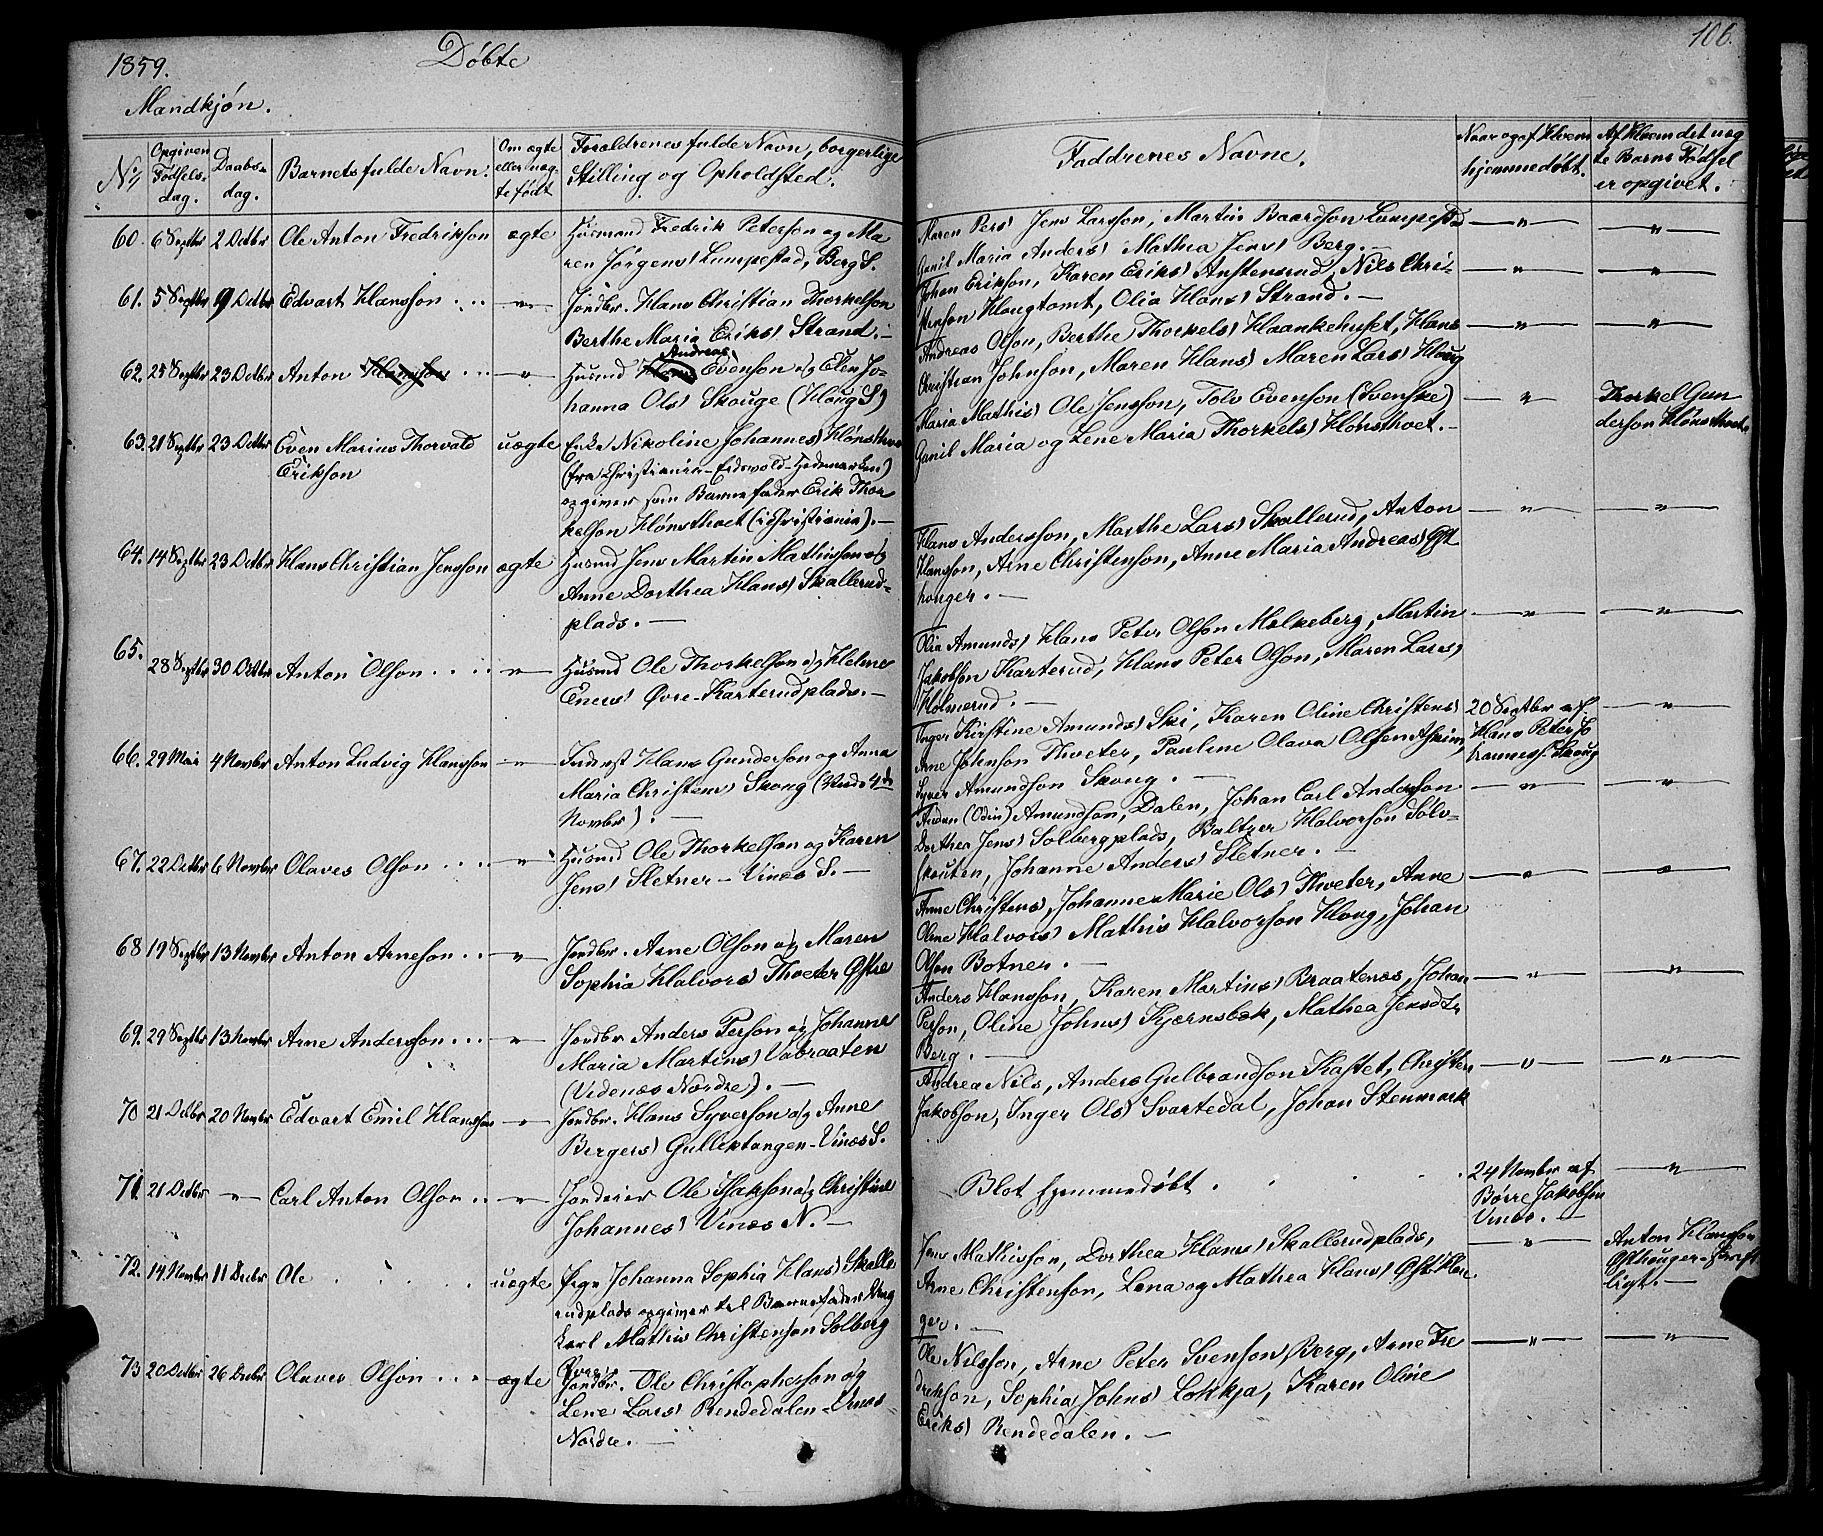 1859.
Døbte
Mandkjøn.
No
Opgiven Fødsels-dag.
Daabs-dag.
Barnets fulde Navn.
Om ægte eller uæg-te født
Forældrenes fulde Navn, borgerlige Stilling og Opholdsted.
60. 6 Septbr 2 Octbr Ole Anton Fredrikson ægte Husmand Fredrik Peterson og Ma-
ren Jørgens) Lumpestad, Berg S.
61. 5 Septbr 9 Octbr Edvart Hansson . . . — " — Jordbr. Hans Christian Thorkelson
Berthe Maria Eriks) Strand. —
62. 25 Septbr 23 Octbr Anton Hansson . . . — " — Husmd Andreas Evenson og Elen Jo-
hanna Ols) Skouge (Haug S)
63. 21 Septbr 23 Octbr Even Marius Thorvald uægte Enke Nikoline Johannes) Hønsthvet
Erikson
(fra Christiania - Eidsvold - Hedemarken)
opgiver som Barnefader Erik Thor-
kelson Hønsthvet (i Christiania). —
64. 14 Septbr 23 Octbr Hans Christian Jensson ægte Husmd Jens Martin Mathisson og
Anne Dorthea Hans) Skallerud-
plads. —
65.
28 Septbr 30 Octbr Anton Olson . . . . — " — Husmd Ole Thorkelson og Helene
Eners) Øvre-Karterudplads. —
66. 29 Mai 4 Novbr Anton Ludvig Hansson — " — Inderst Hans Gunderson og Anna
Maria Christens) Skoug (
Novbr). —
67. 22 Octbr 6 Novbr Olaves Olson . . . . — " — Husmd Ole Thorkelson og Karen
Jens) Sletner - Vines S. —
68 19 Septbr 13 Novbr Anton Arneson . . — " — Jordbr. Arne Olson og Maren
Sophia Halvors) Thveter Østre
69. 29 Septbr 13 Novbr Arne Andersson . . . — " — Jordbr Anders Person og Johanne
Maria Martins) Vabraaten
(Videnæs Nordre). —
70 21 Octbr 20 Novbr Edvart Emil Hansson — " — Jordbr. Hans Syverson og Anne
Bergers) Gulliktangen - Vinæs S.
71. 21 Octbr — " — Carl Anton Olson . . — " — Jordeier Ole Isakson og Christine
Johannes) Vinæs N. —
72. 14 Novbr 11 Decbr Ole . . . . . uægte Pige Johanna Sophia Hans) Skalle-
rudplads opgiver til Barnefader Ung-
karl Mathis Christenson Solberg
73 20 Octbr 26 Decbr Olaver Olson . . . . ægte Jordbr. Ole Christopherson og
Lene Lars) Rendedalen - Vinæs-
Nordre. —
106.
Faddrenes Navne.
Naar og af Hvem hjemmedøbt.
Af Hvem det uæg-te Barns Fødsel er opgivet.
Maren Pers) Jens Larsson, Martin Baardson Lumpestad
Gunil Maria Anders) Mathea Jens) Berg. —
Johan Erikson, Karen Eriks) Austensrud, Nils Chri-
stenson Haugtomt, Olia Hans) Strand. —
Andreas Olson, Berthe Thorkels) Haankehuset, Hans
Christian Johnson, Maren Hans) Maren Lars) Haug
Maria Mathis) Ole Jensson, Tolv Evenson (Svenske)
Gunil Maria og Lene Maria Thorkels) Hønsthvet. —
Thorkel Gun-
derson Hønsthvet
Hans Andersson, Marthe Lars) Skallerud, Anton
Hansson, Arne Christenson, Anne Maria Andreas) Øst-
houger. —
Olia Amunds) Hans Peter Olson Molkeberg, Martin
Jakobson Karterud, Hans Peter Olson, Maren Lars)
Holmerud. —
Inger Kirstine Amunds) Ski, Karen Oline Christens)
Arne Johnson Thveter, Pauline Olava Olsen Askim,
Syver Amundson Skoug. —
20 Septbr af
Hans Peter Jo-
hanness. Skoug
Audun (Odin) Amundson, Dalen, Johan Carl Anderson
Dorthea Jens) Solbergplads, Baltzer Halvorson Sølv-
skouten, Johanne Anders) Sletner. —
Anne Christens), Johanne Marie Ols) Thveter, Anne
Oline Halvors) Mathis Halvorson Houg, Johan
Olson Botner. —
Anders Hansson, Karen Martins) Braatenæs, Johan
Person, Oline Johns) Kjærnsbæk, Mathea Jensdtr
Berg. —
Andrea Nils, Anders Gulbrandson Kastet, Christen
Jakobson, Inger Ols) Svartedal, Johan Stenmark
Blot hjemmedøbt .
24 Novbr af
Børre Jakobson
Vinæs. —
Jens Mathisson, Dorthea Hans) Skallerudplads,
Arne Christenson, Lena og Mathea Hans) Østhou-
ger. —
Anton Hansson
Østhouger - skrift-
ligt. —
Ole Nilsson, Arne Peter Svenson Berg, Arne Fre-
drekson, Sophia Johns) Løkkja, Karen Oline
Eriks) Rendedalen. —